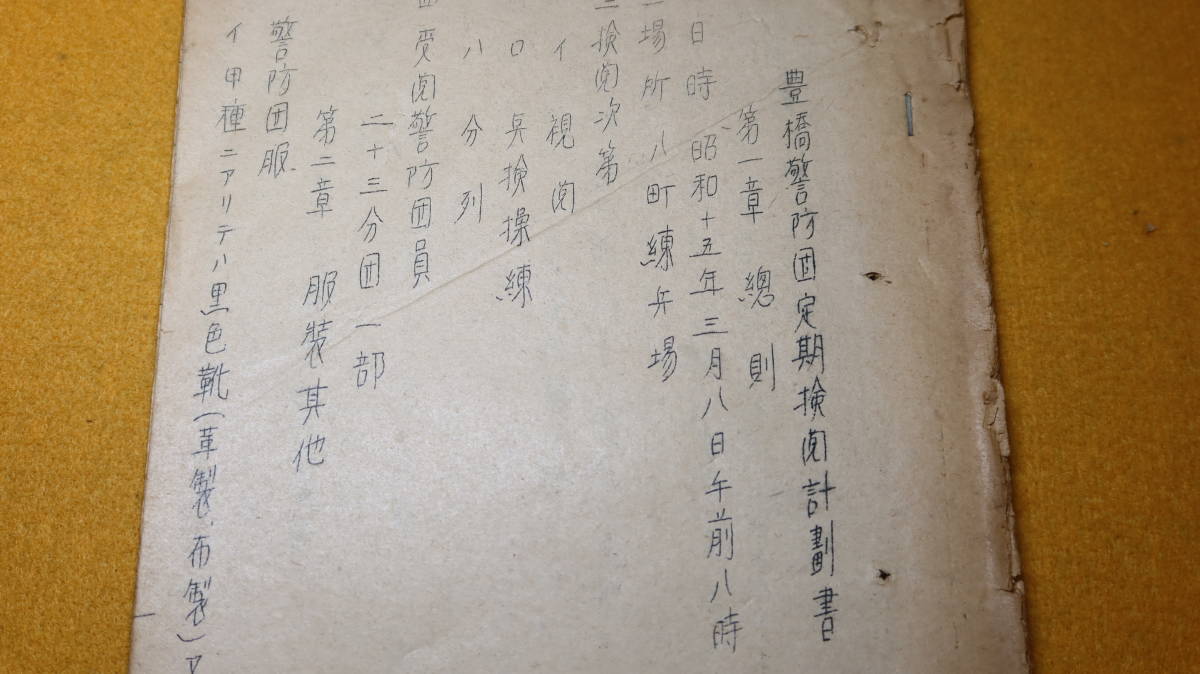 豊橋警防団定期検閲計劃書
第一章 總則
日時 昭和十五年三月八日午前八時
場所 八町練兵場
検閲次第
イ 視閲
ロ 兵検操練
ハ 分列
四受閲警防団員
二十三分団一部
第二章 服装其他
警防団服
イ 甲種ニアリテハ黒色靴(革製、布製)ア